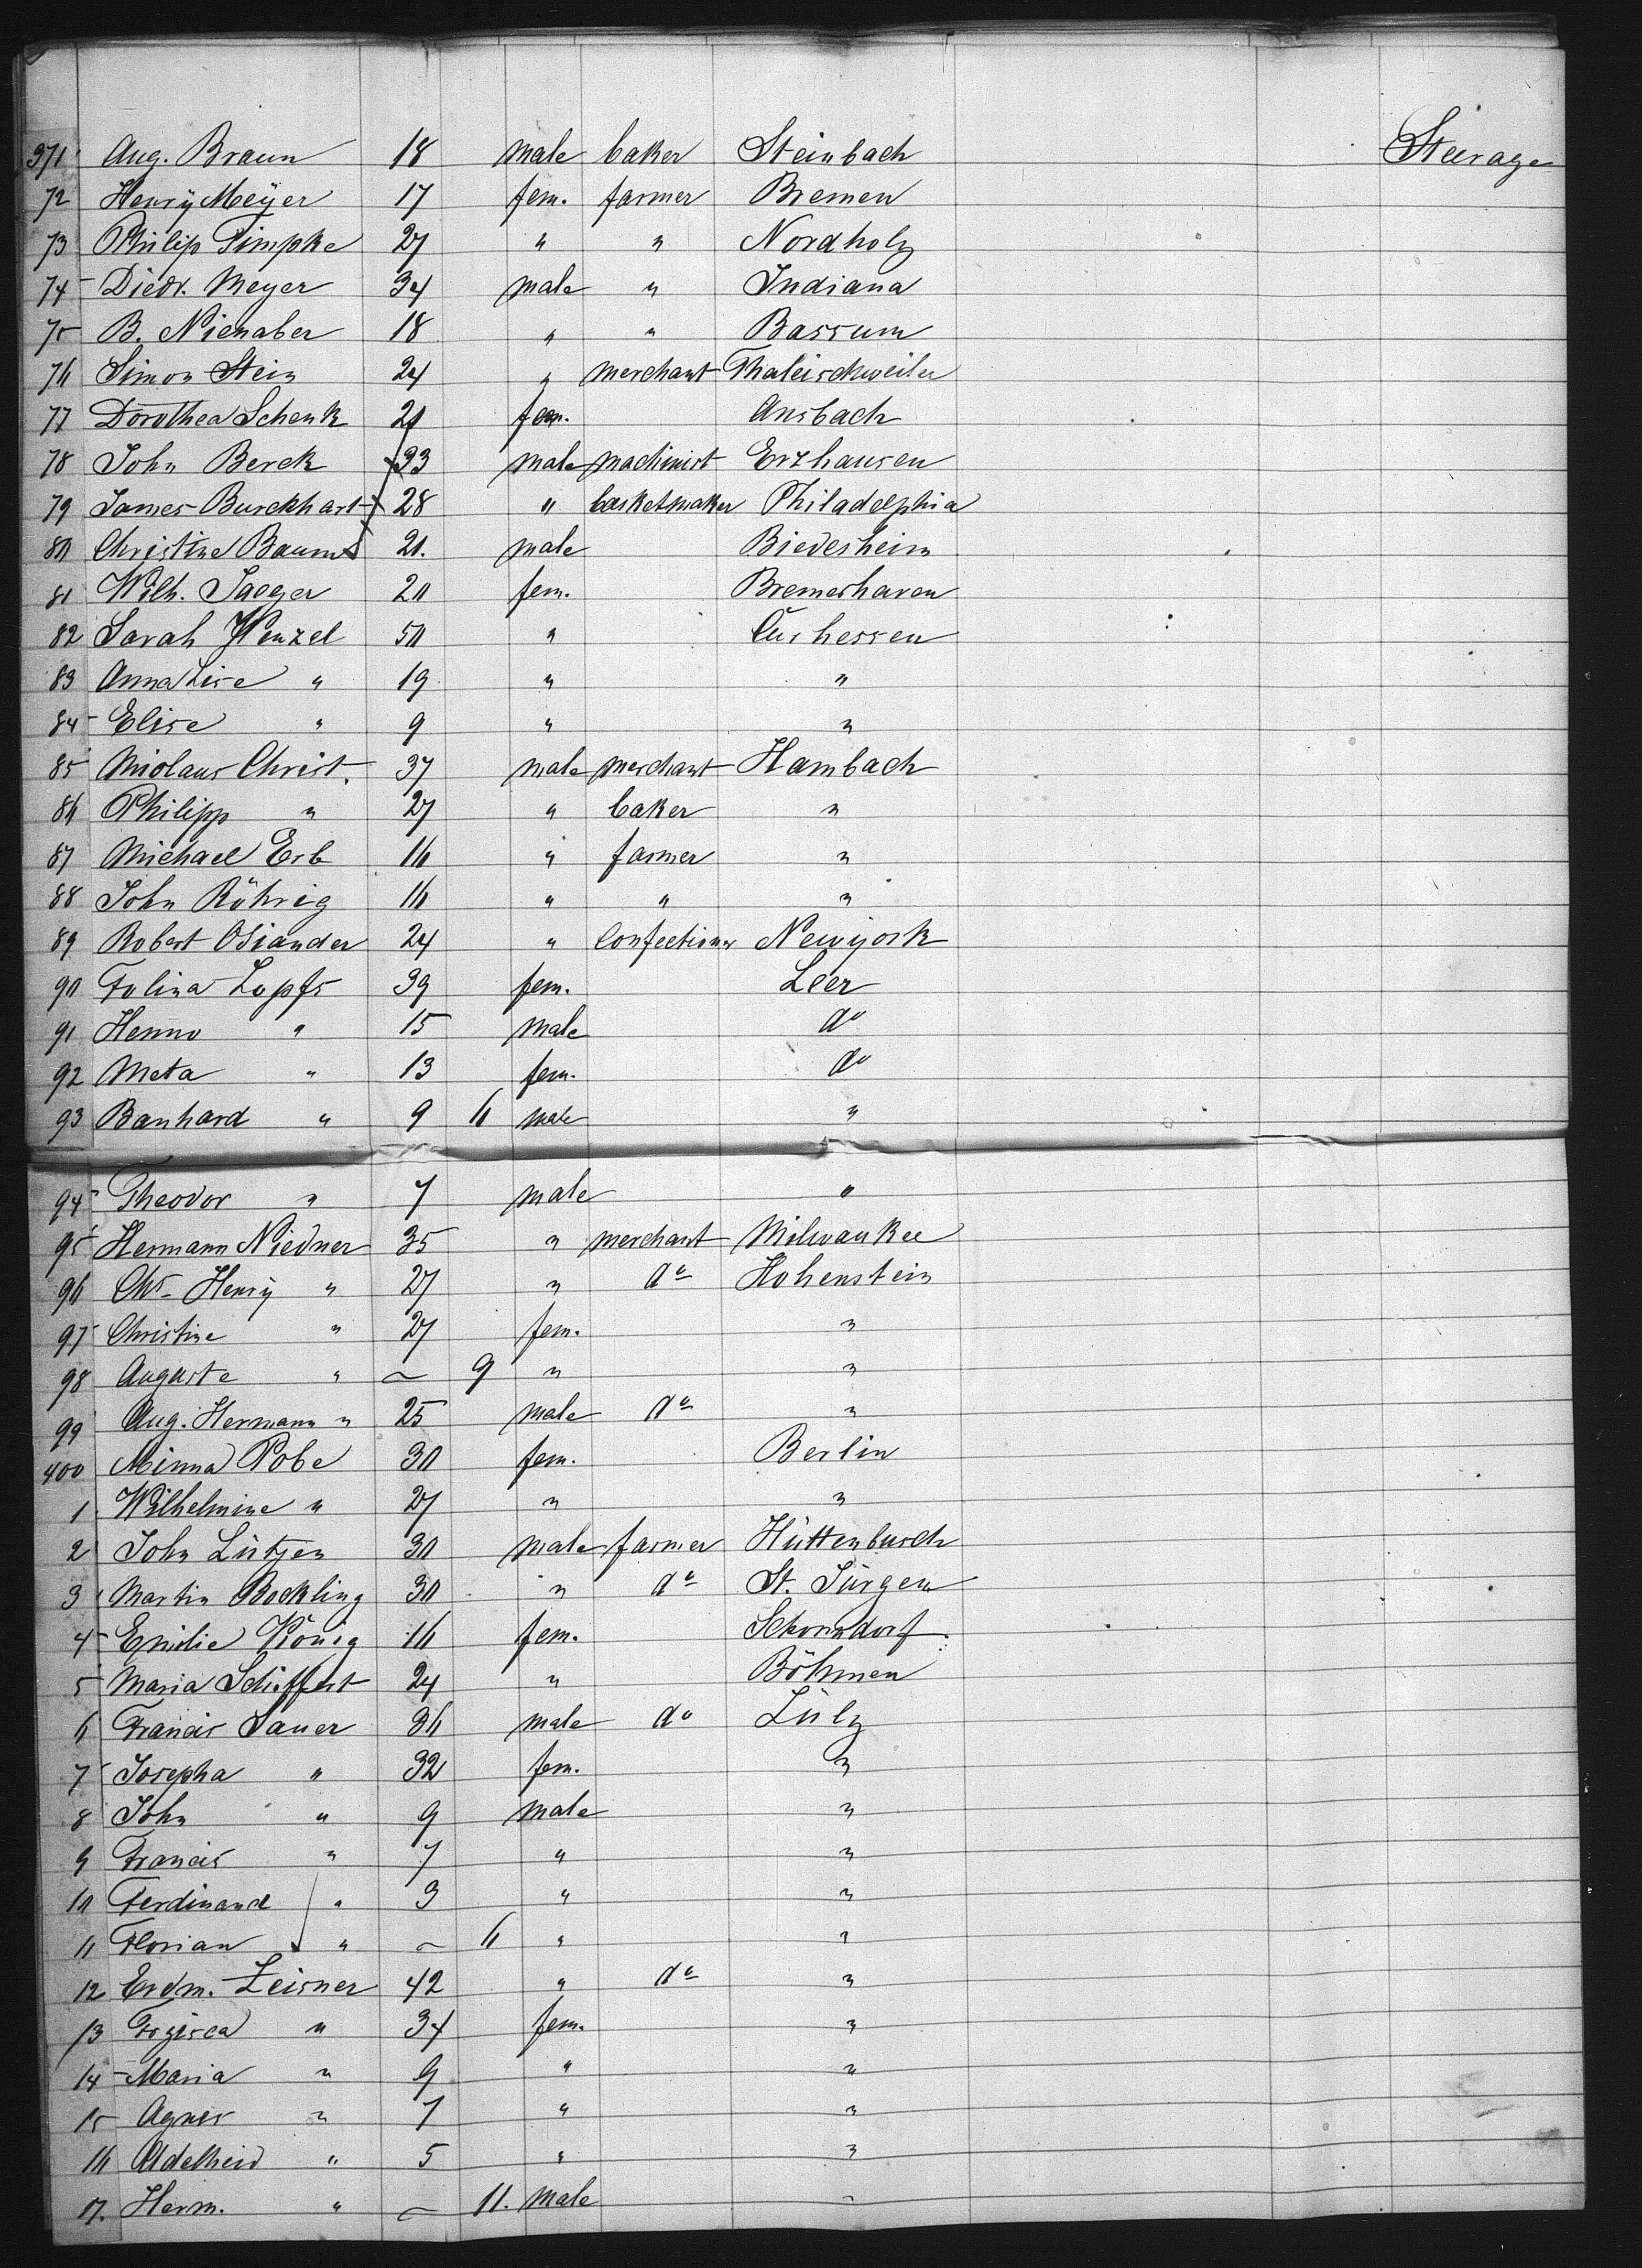 371 Aug. Braun 18 male baker Steinbach Steerage
72 Henrÿ Meÿer 17 fem. farmer Bremen
73 Philip Timpke 27 " " Nordholz
74 Diedr. Meyer 34 male " Indiana
75 B. Nienaber 18 " " Bassum
76 Simon Stein 24 " merchant Thaleischweiler
77 Dorothea Schenk 20 fem. Ansbach
78 John Berck 33 male machinist Erzhausen
79 James Burckhart 28 " basketmaker Philadelphia
80 Christine Baum 21. male Biedesheim
81 Wilh. Jaeger 20 fem. Bremerhaven
82 Sarah Wenzel 50 " Curhessen
83 Anna Lise " 19 " "
84 Elise " 9 " "
85 Niolaus Christ. 37 male merchant Hambach
86 Philipp " 27 " baker "
87 Michael Erb 16 " farmer "
88 John Röhrig 16 " " "
89 Robert Osiander 24 " Confectioner Newÿork
90 Folina Lopfs 39 fem. Leer
91 Henno " 15 male do
92 Meta " 13 fem. do
93 Banhard " 9 6 male "
94 Theodor " 7 male "
95 Hermann Niedner 35 " merchant Milwaukee
96 Chr. Henrÿ " 27 " do Hohenstein
97 Christine " 27 fem. "
98 Auguste " ~ 9 " "
99 Aug. Hermann " 25 male do "
400 Minna Pobe 30 fem. Berlin
1 Wilhelmine " 27 " "
2 John Lütjen 30 male farmer Hüttenbusch
3 Martin Bockling 30 " do St. Jürgen
4 Emilie König 16 fem. Schorndorf
5 Maria Schiffert 24 " Böhmen
6 Francis Sauer 36 male do Lülz
7 Josepha " 32 fem. "
8 John " 9 male "
9 Francis " 7 " "
10 Ferdinand " 3 " "
11 Florian " ~ 6 " "
12 Erdm. Zeisner 42 " do "
13 Frzisca " 34 fem. "
14 Maria " 9 " "
15 Agnes " 7 " "
16 Adelheid " 5 " "
17. Herm. " ~ 11. male "